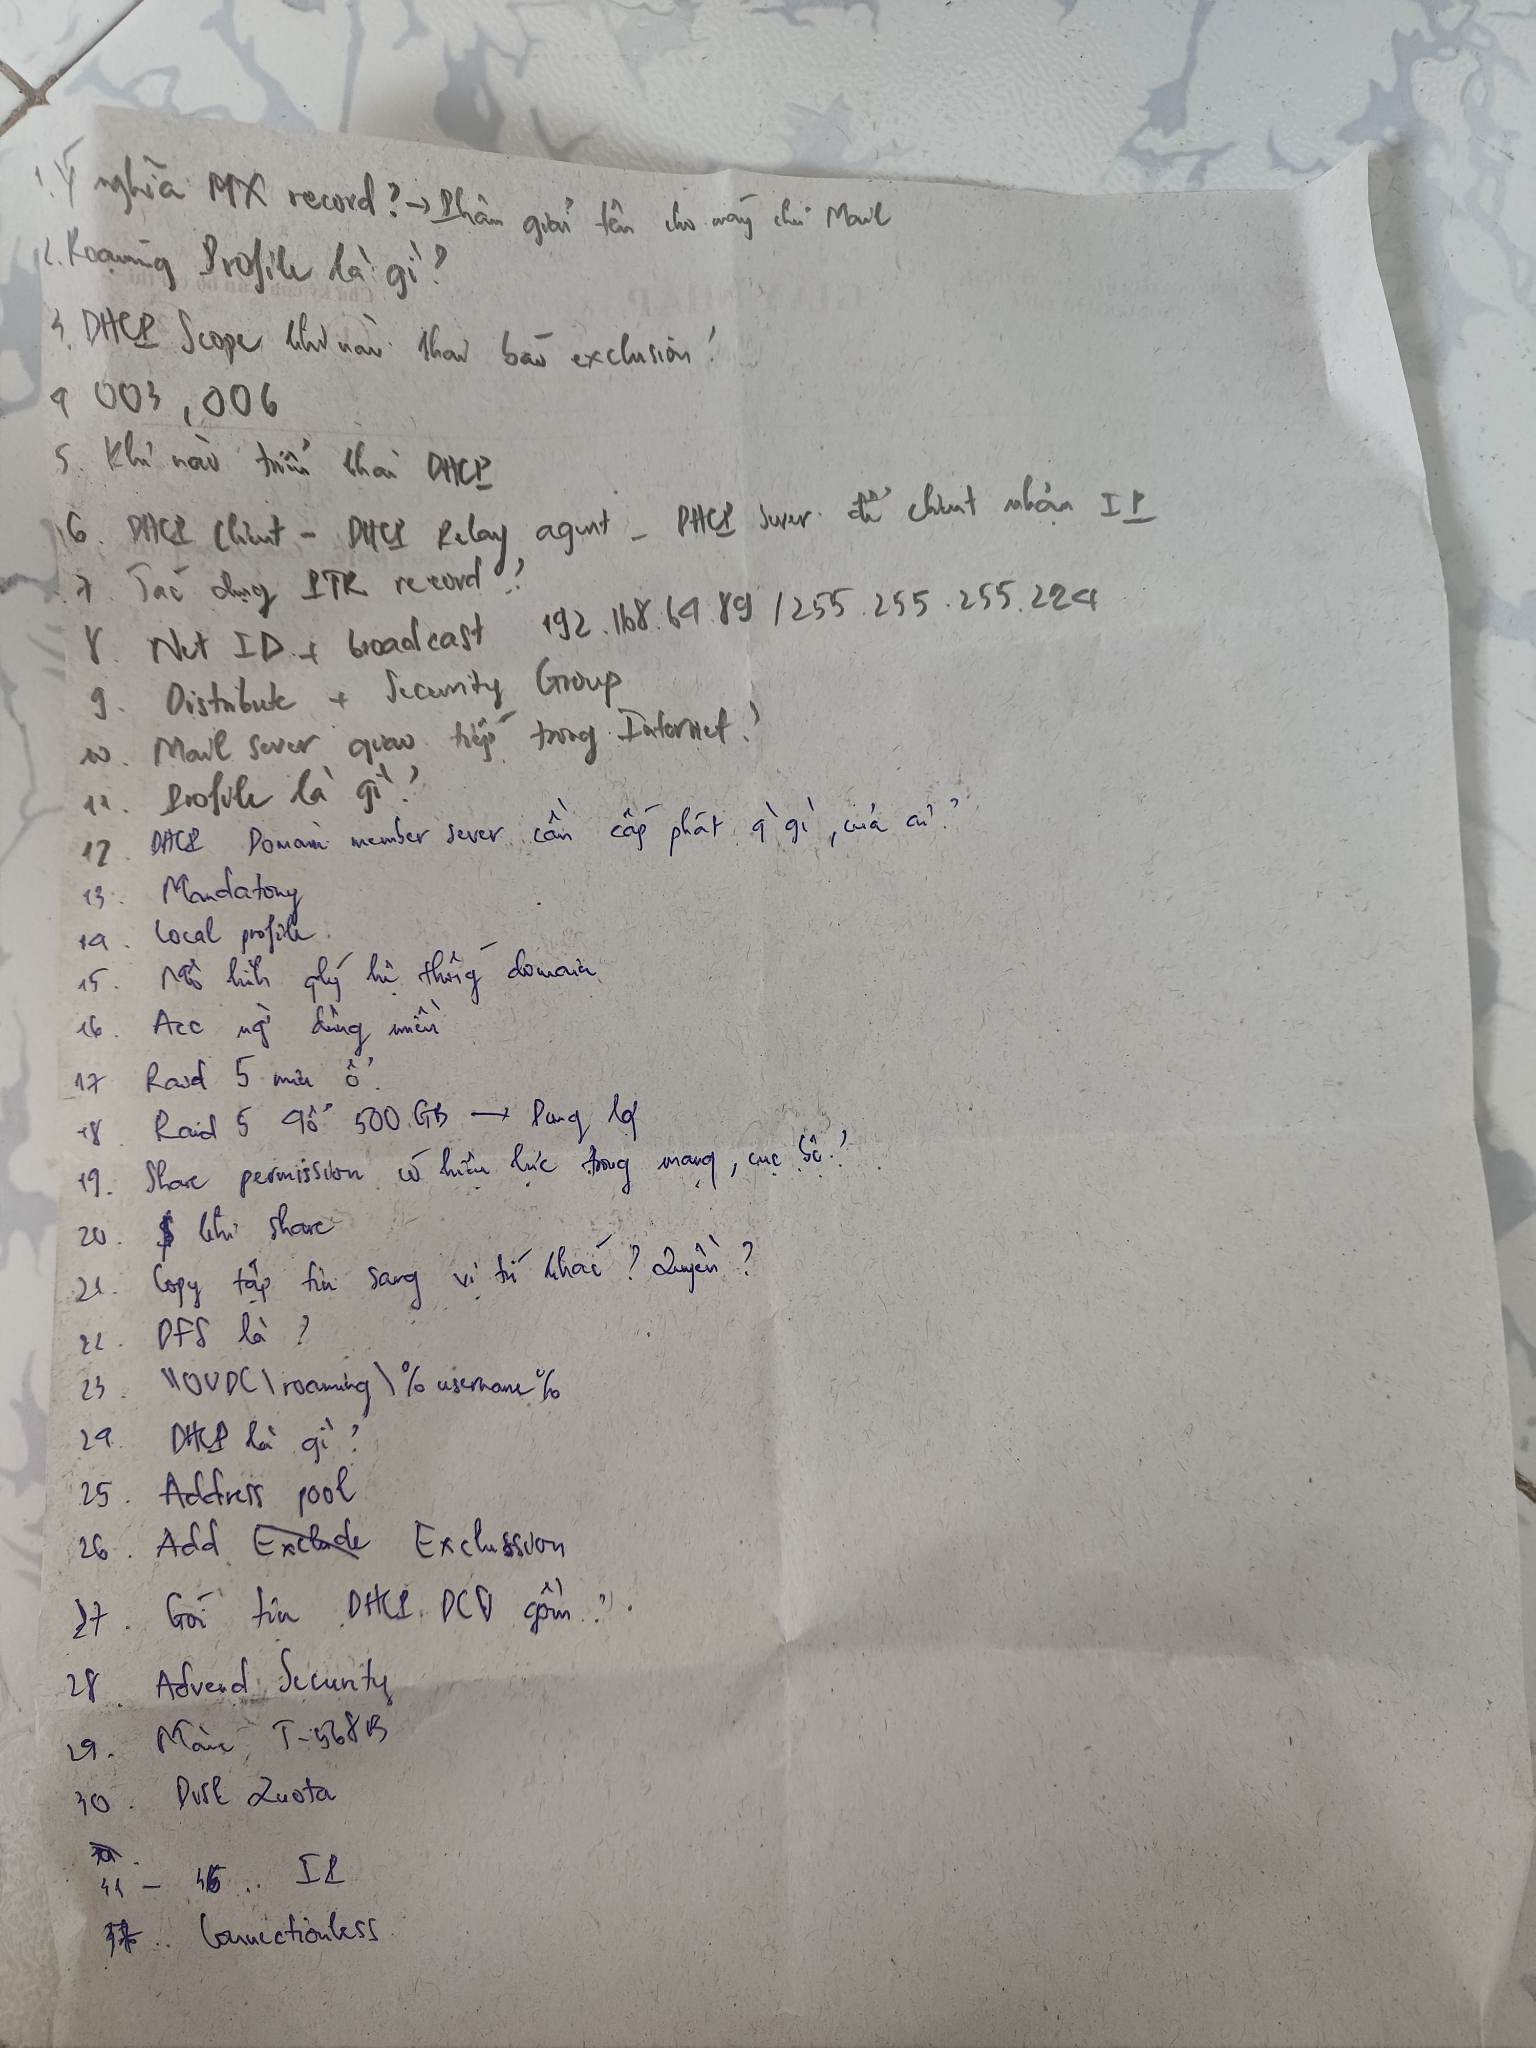 1. Ý nghĩa MX record? → Phân giải tên cho máy chủ Mail
2. Roaming Profile là gì?
3. DHCP Scope khi nào khai báo exclusion?
4 003, 006
5. Khi nào triển khai DHCP
6. DHCP Client - DHCP Relay agent - DHCP Sever để client nhận IP
7 Tác dụng PTR record?
8. Net ID + broadcast 192.168.64.89 / 255.255.255.224
9. Distribute + Security Group
10. Mail sever giao tiếp trong Internet?
11. Profile là gì?
12. DHCP Domain member sever cần cấp phát gì
13. Mandatory
14. Local profile
15. Mô hình qlý hệ thống domain
16. Acc ng dùng miền
17 Raid 5 mấy ổ?
18. Raid 5 4 ổ 500.GB → Dung lg
19. Share permission có hiệu lực trong mạng, cục bộ?
20. $ khi share
21. Copy tập tin sang vị trí khác? Quyền?
22. DFS là?
23. \\OVDC\roaming\%username%
24. DHCP là gì?
25. Address pool
26. Add Exclude Exclussion
27. Gói tin DHCP DCV gồm?
28. Advend Security
29. Màu T-568B
30. Disk Quota
31 - 36.. IP
37.. Connectionless